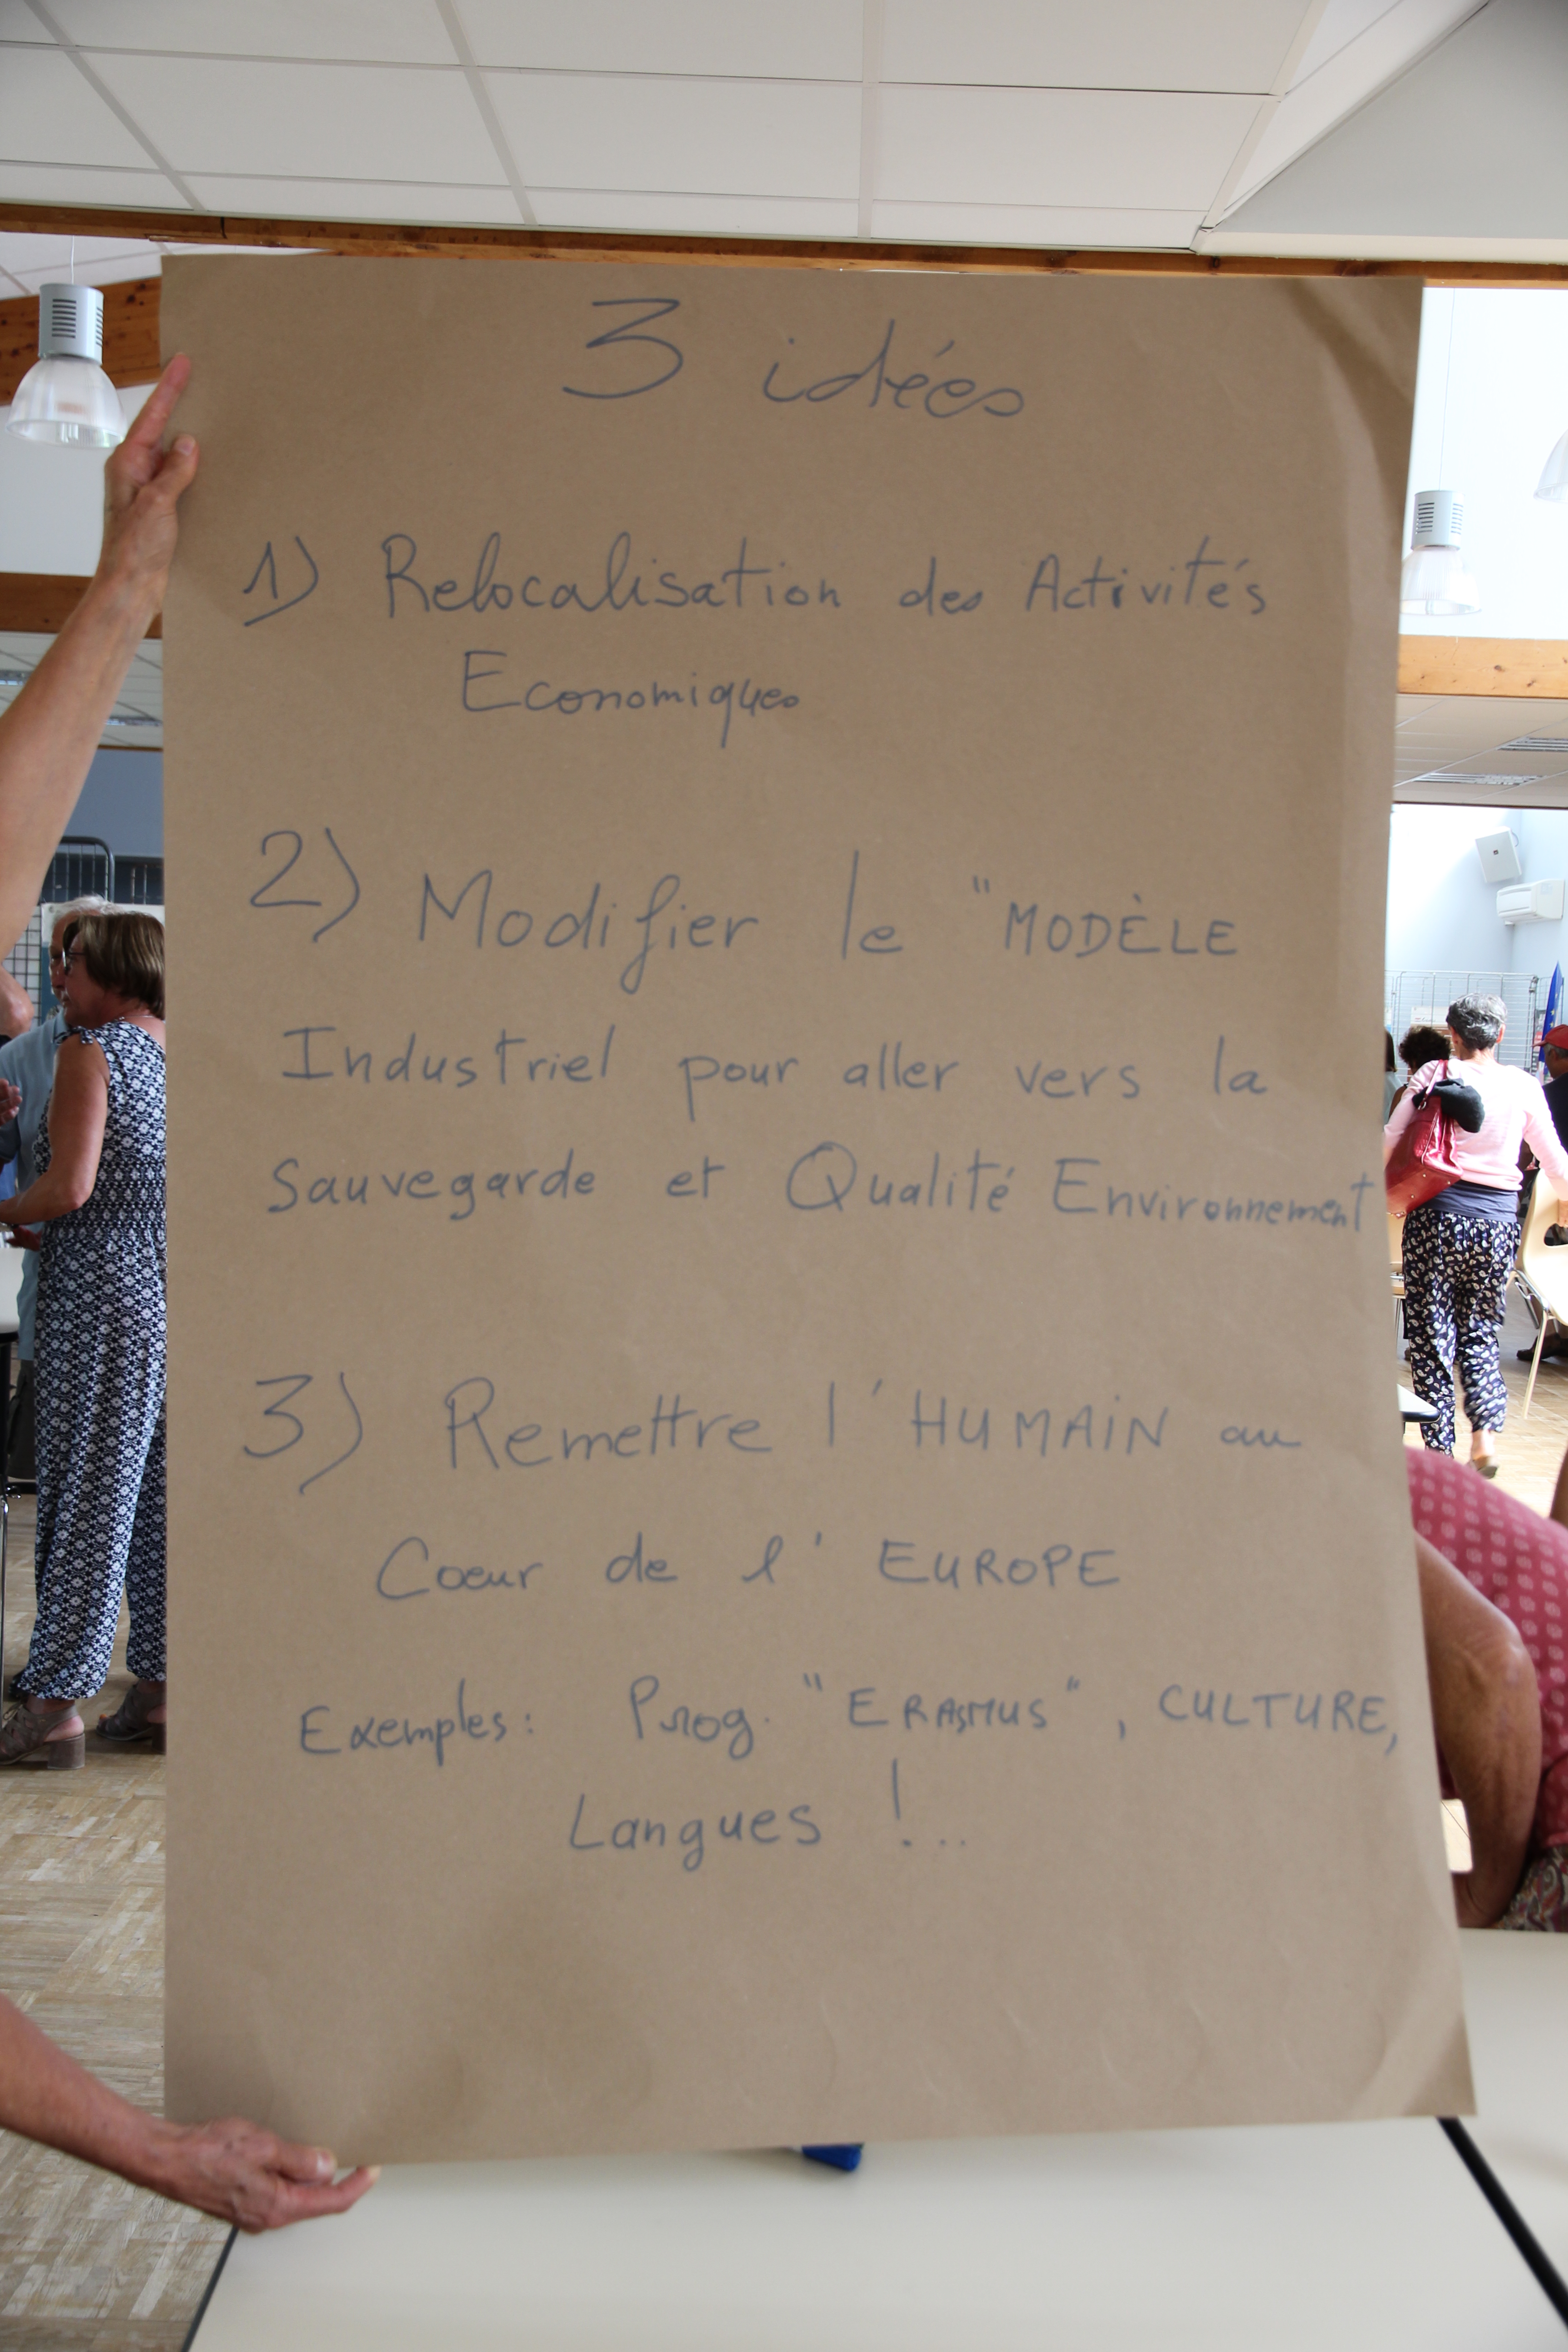 3 idées
1) Relocalisation des Activités
Economiques
2) Modifier le "MODÈLE
Industriel pour aller vers la
Sauvegarde et Qualité Environnement
3) Remettre l'HUMAIN au
Coeur de l'EUROPE
Exemples: Prog. "ERASMUS", CULTURE,
Langues !...